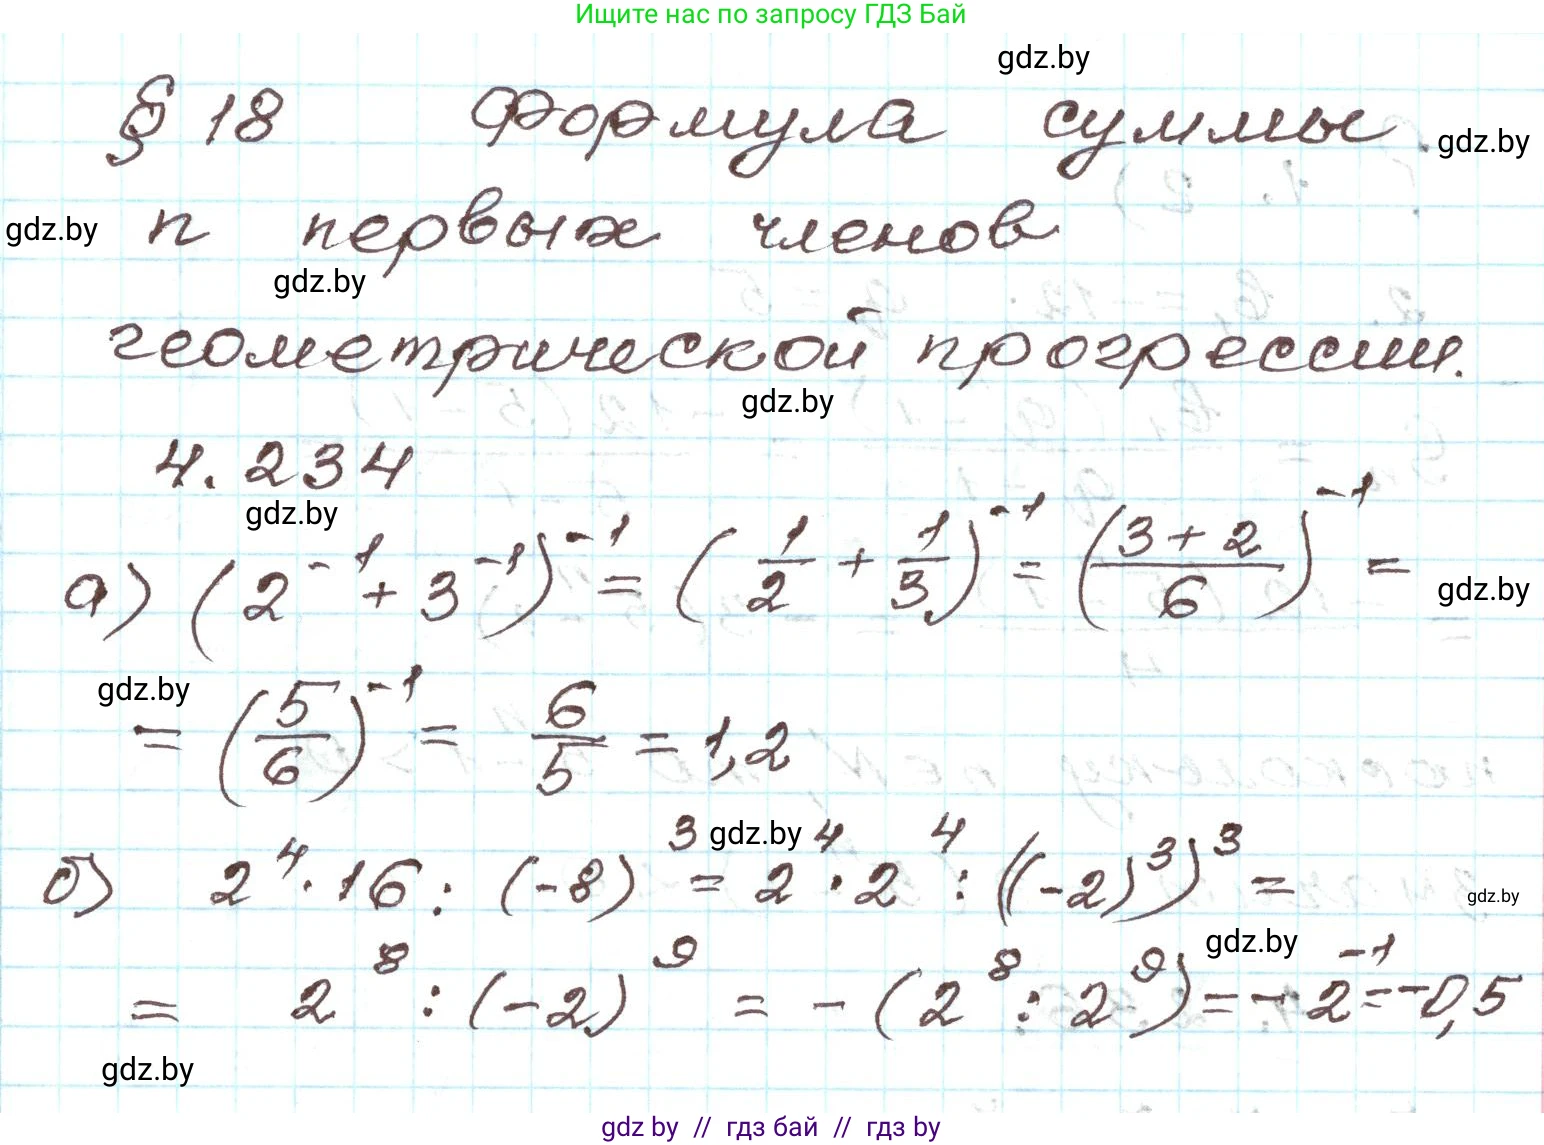 Ищите нас по запросу ГДЗ Бай
gdz.by
§ 18 Формула суммы
gdz.by
gdz.by
n первых членов
gdz.by
геометрической прогрессии.
gdz.by
4.234
gdz.by
а) (2⁻¹ + 3⁻¹)⁻¹ = (1/2 + 1/3)⁻¹ = ((3 + 2)/6)⁻¹ =
gdz.by
gdz.by
= (5/6)⁻¹ = 6/5 = 1,2
gdz.by
б) 2⁴ · 16 : (-8)³ = 2⁴ · 2⁴ : ((-2)³)³ =
gdz.by
gdz.by
= 2⁸ : (-2)⁹ = - (2⁸ : 2⁹) = - 2⁻¹ = -0,5
gdz.by
gdz by // гдз бай // гдз by